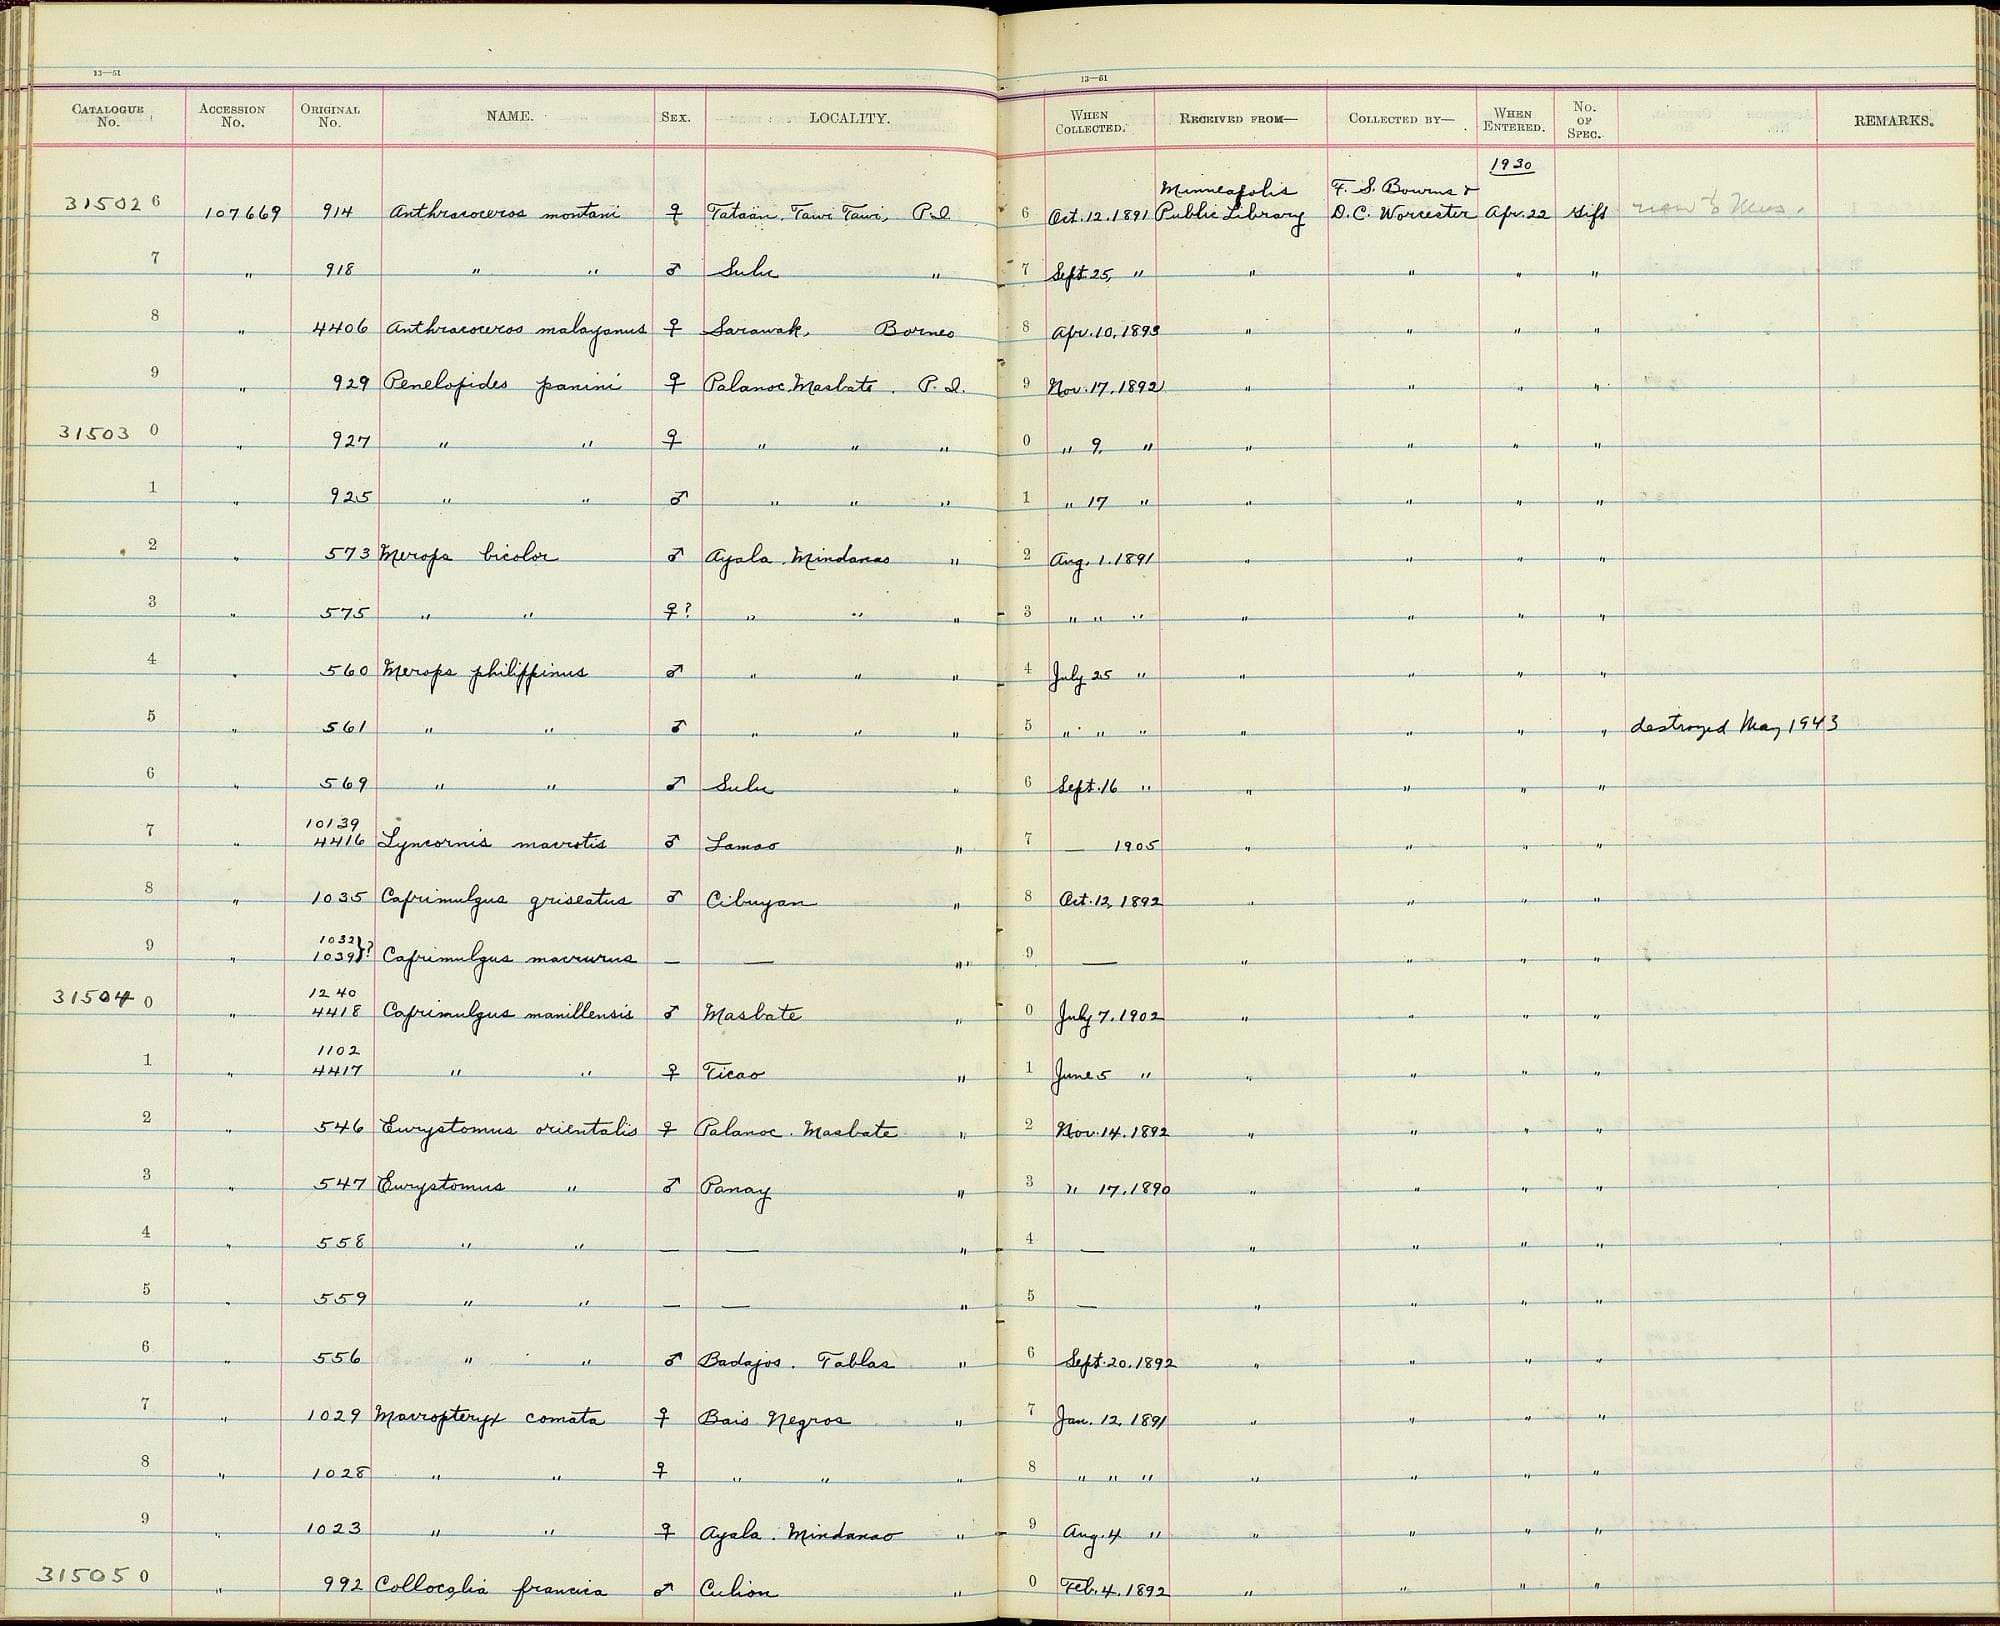 13—51 13—51
CATALOGUE No. ACCESSION No. ORIGINAL No. NAME. SEX. LOCALITY. WHEN COLLECTED. RECEIVED FROM— COLLECTED BY— WHEN ENTERED. No. OF SPEC. REMARKS.
1930
Minneapolis F. S. Bourns &
31502 6 107669 914 Anthracoceros montani ♀ Tataän. Tawi Tawi, P.I. 6 Oct. 12. 1891 Public Library D. C. Worcester Apr. 22 Gift new to Mus.
7 " 918 " " ♂ Sulu " 7 Sept 25, " " " " "
8 " 4406 Anthracoceros malayanus ♀ Sarawak, Borneo 8 Apr. 10, 1893 " " " "
9 " 929 Penelopides panini ♀ Palanoc. Masbate. P. I. 9 Nov. 17. 1892 " " " "
31503 0 " 927 " " ♀ " " " 0 " 9, " " " " "
1 " 925 " " ♂ " " " 1 " 17 " " " " "
2 " 573 Merops bicolor ♂ Ayala. Mindanao " 2 Aug. 1. 1891 " " " "
3 " 575 " " ♀? " " " 3 " " " " " " "
4 " 560 Merops philippinus ♂ " " " 4 July 25 " " " " "
5 " 561 " " ♂ " " " 5 " " " " " " " destroyed May 1943
6 " 569 " " ♂ Sulu " 6 Sept. 16 " " " " "
10139
7 " 4416 Lyncornis macrotis ♂ Lamao " 7 — 1905 " " " "
8 " 1035 Caprimulgus griseatus ♂ Cibuyan " 8 Oct. 12, 1892 " " " "
1032
9 " 1039}? Caprimulgus macrurus — — " 9 — " " " "
1240
31504 0 " 4418 Caprimulgus manillensis ♂ Masbate " 0 July 7. 1902 " " " "
1102
1 " 4417 " " ♀ Ticao " 1 June 5 " " " " "
2 " 546 Eurystomus orientalis ♀ Palanoc. Masbate " 2 Nov. 14. 1892 " " " "
3 " 547 Eurystomus " ♂ Panay " 3 " 17. 1890 " " " "
4 " 558 " " — — " 4 — " " " "
5 " 559 " " — — " 5 — " " " "
6 " 556 " " ♂ Badajos. Tablas " 6 Sept. 20. 1892 " " " "
7 " 1029 Macropteryx comata ♀ Bais Negros " 7 Jan. 12. 1891 " " " "
8 " 1028 " " ♀ " " " 8 " " " " " " "
9 " 1023 " " ♀ Ayala. Mindanao " 9 Aug. 4 " " " " "
31505 0 " 992 Collocalia francica ♂ Culion " 0 Feb. 4. 1892 " " " "